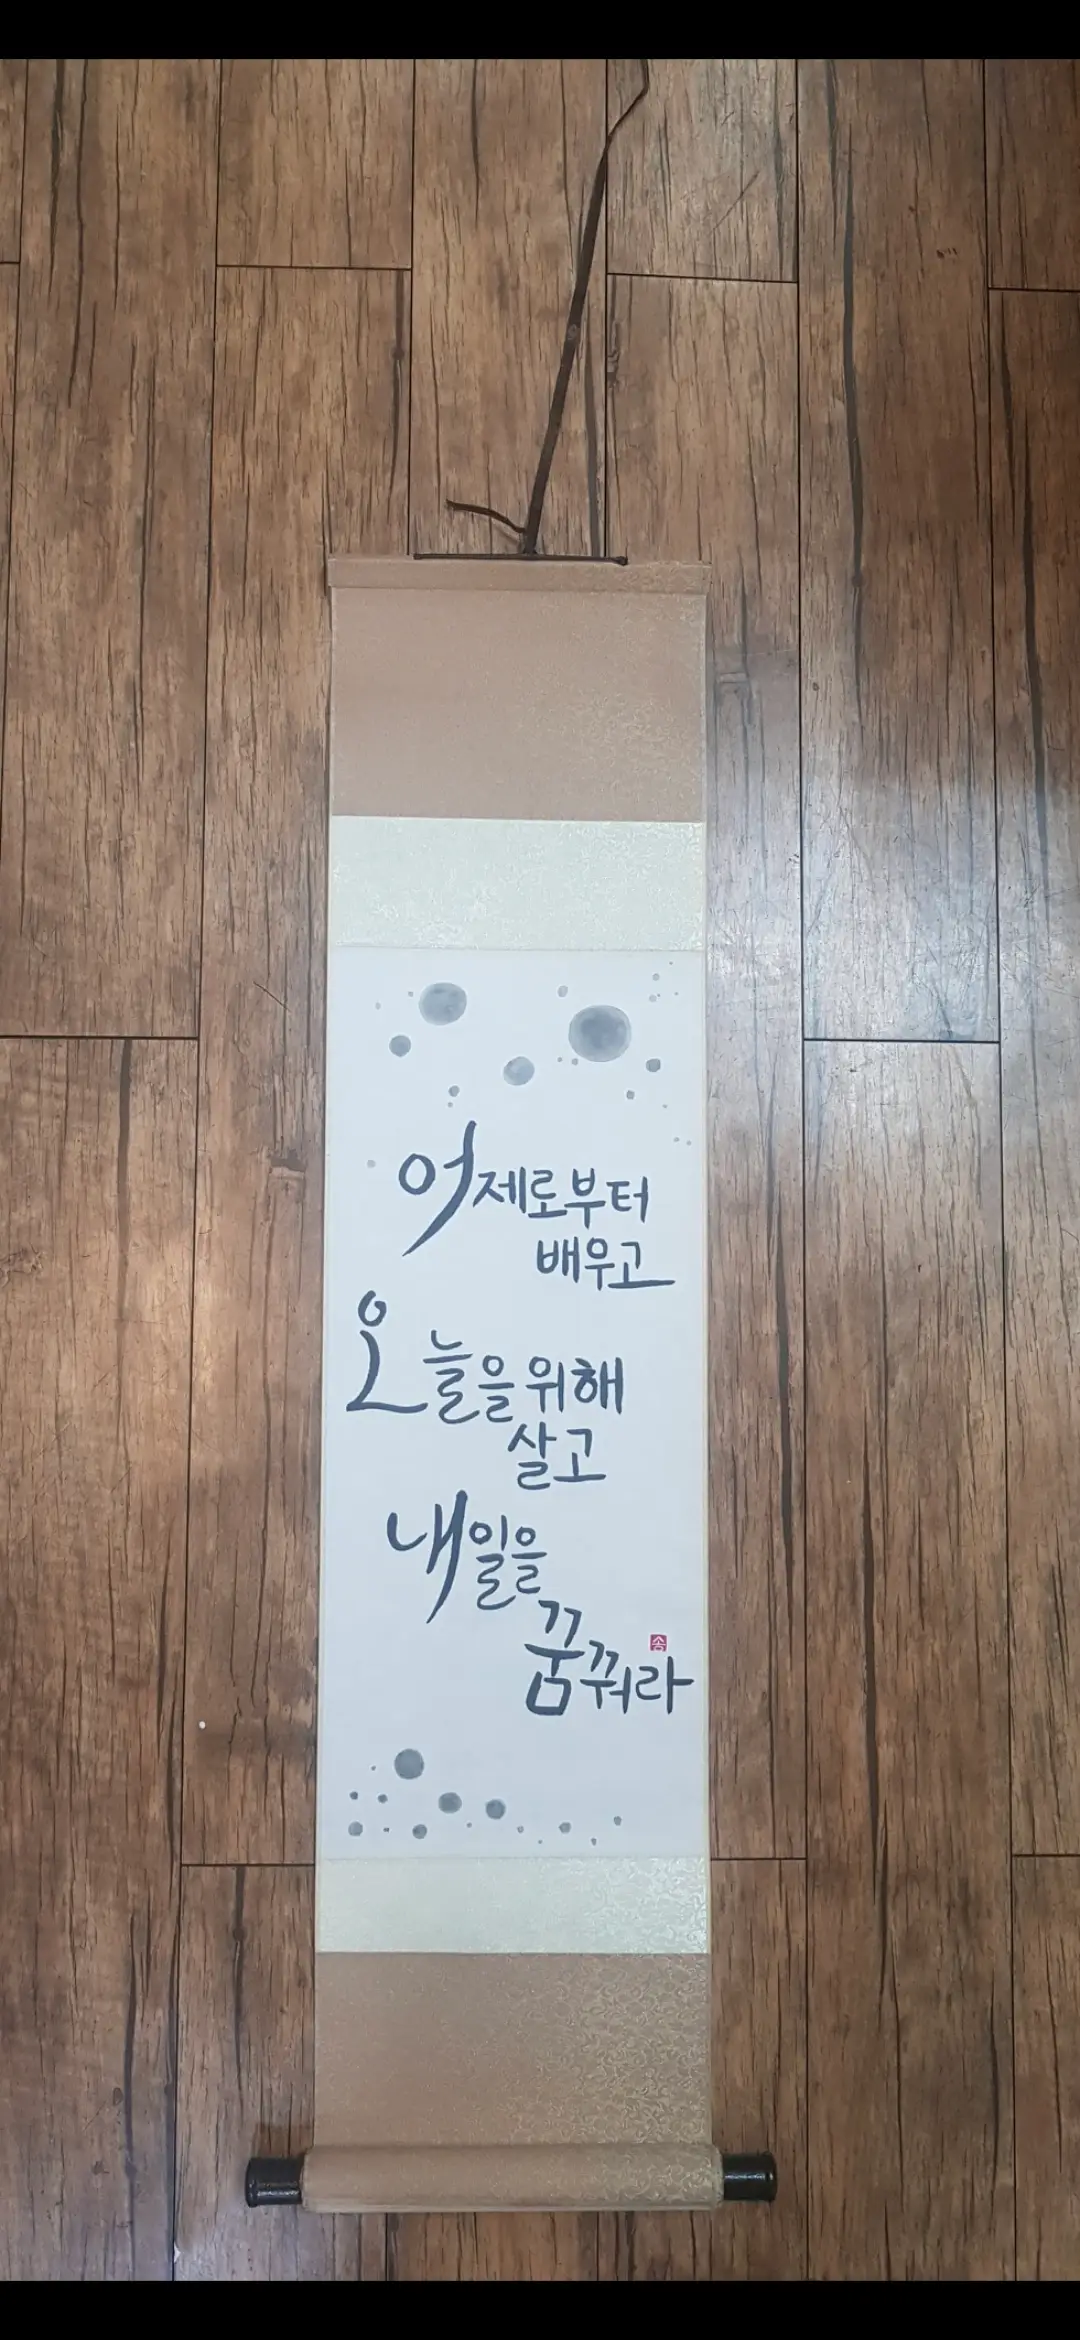 어제로부터
배우고
오늘을 위해
살고
내일을
꿈꿔라
송